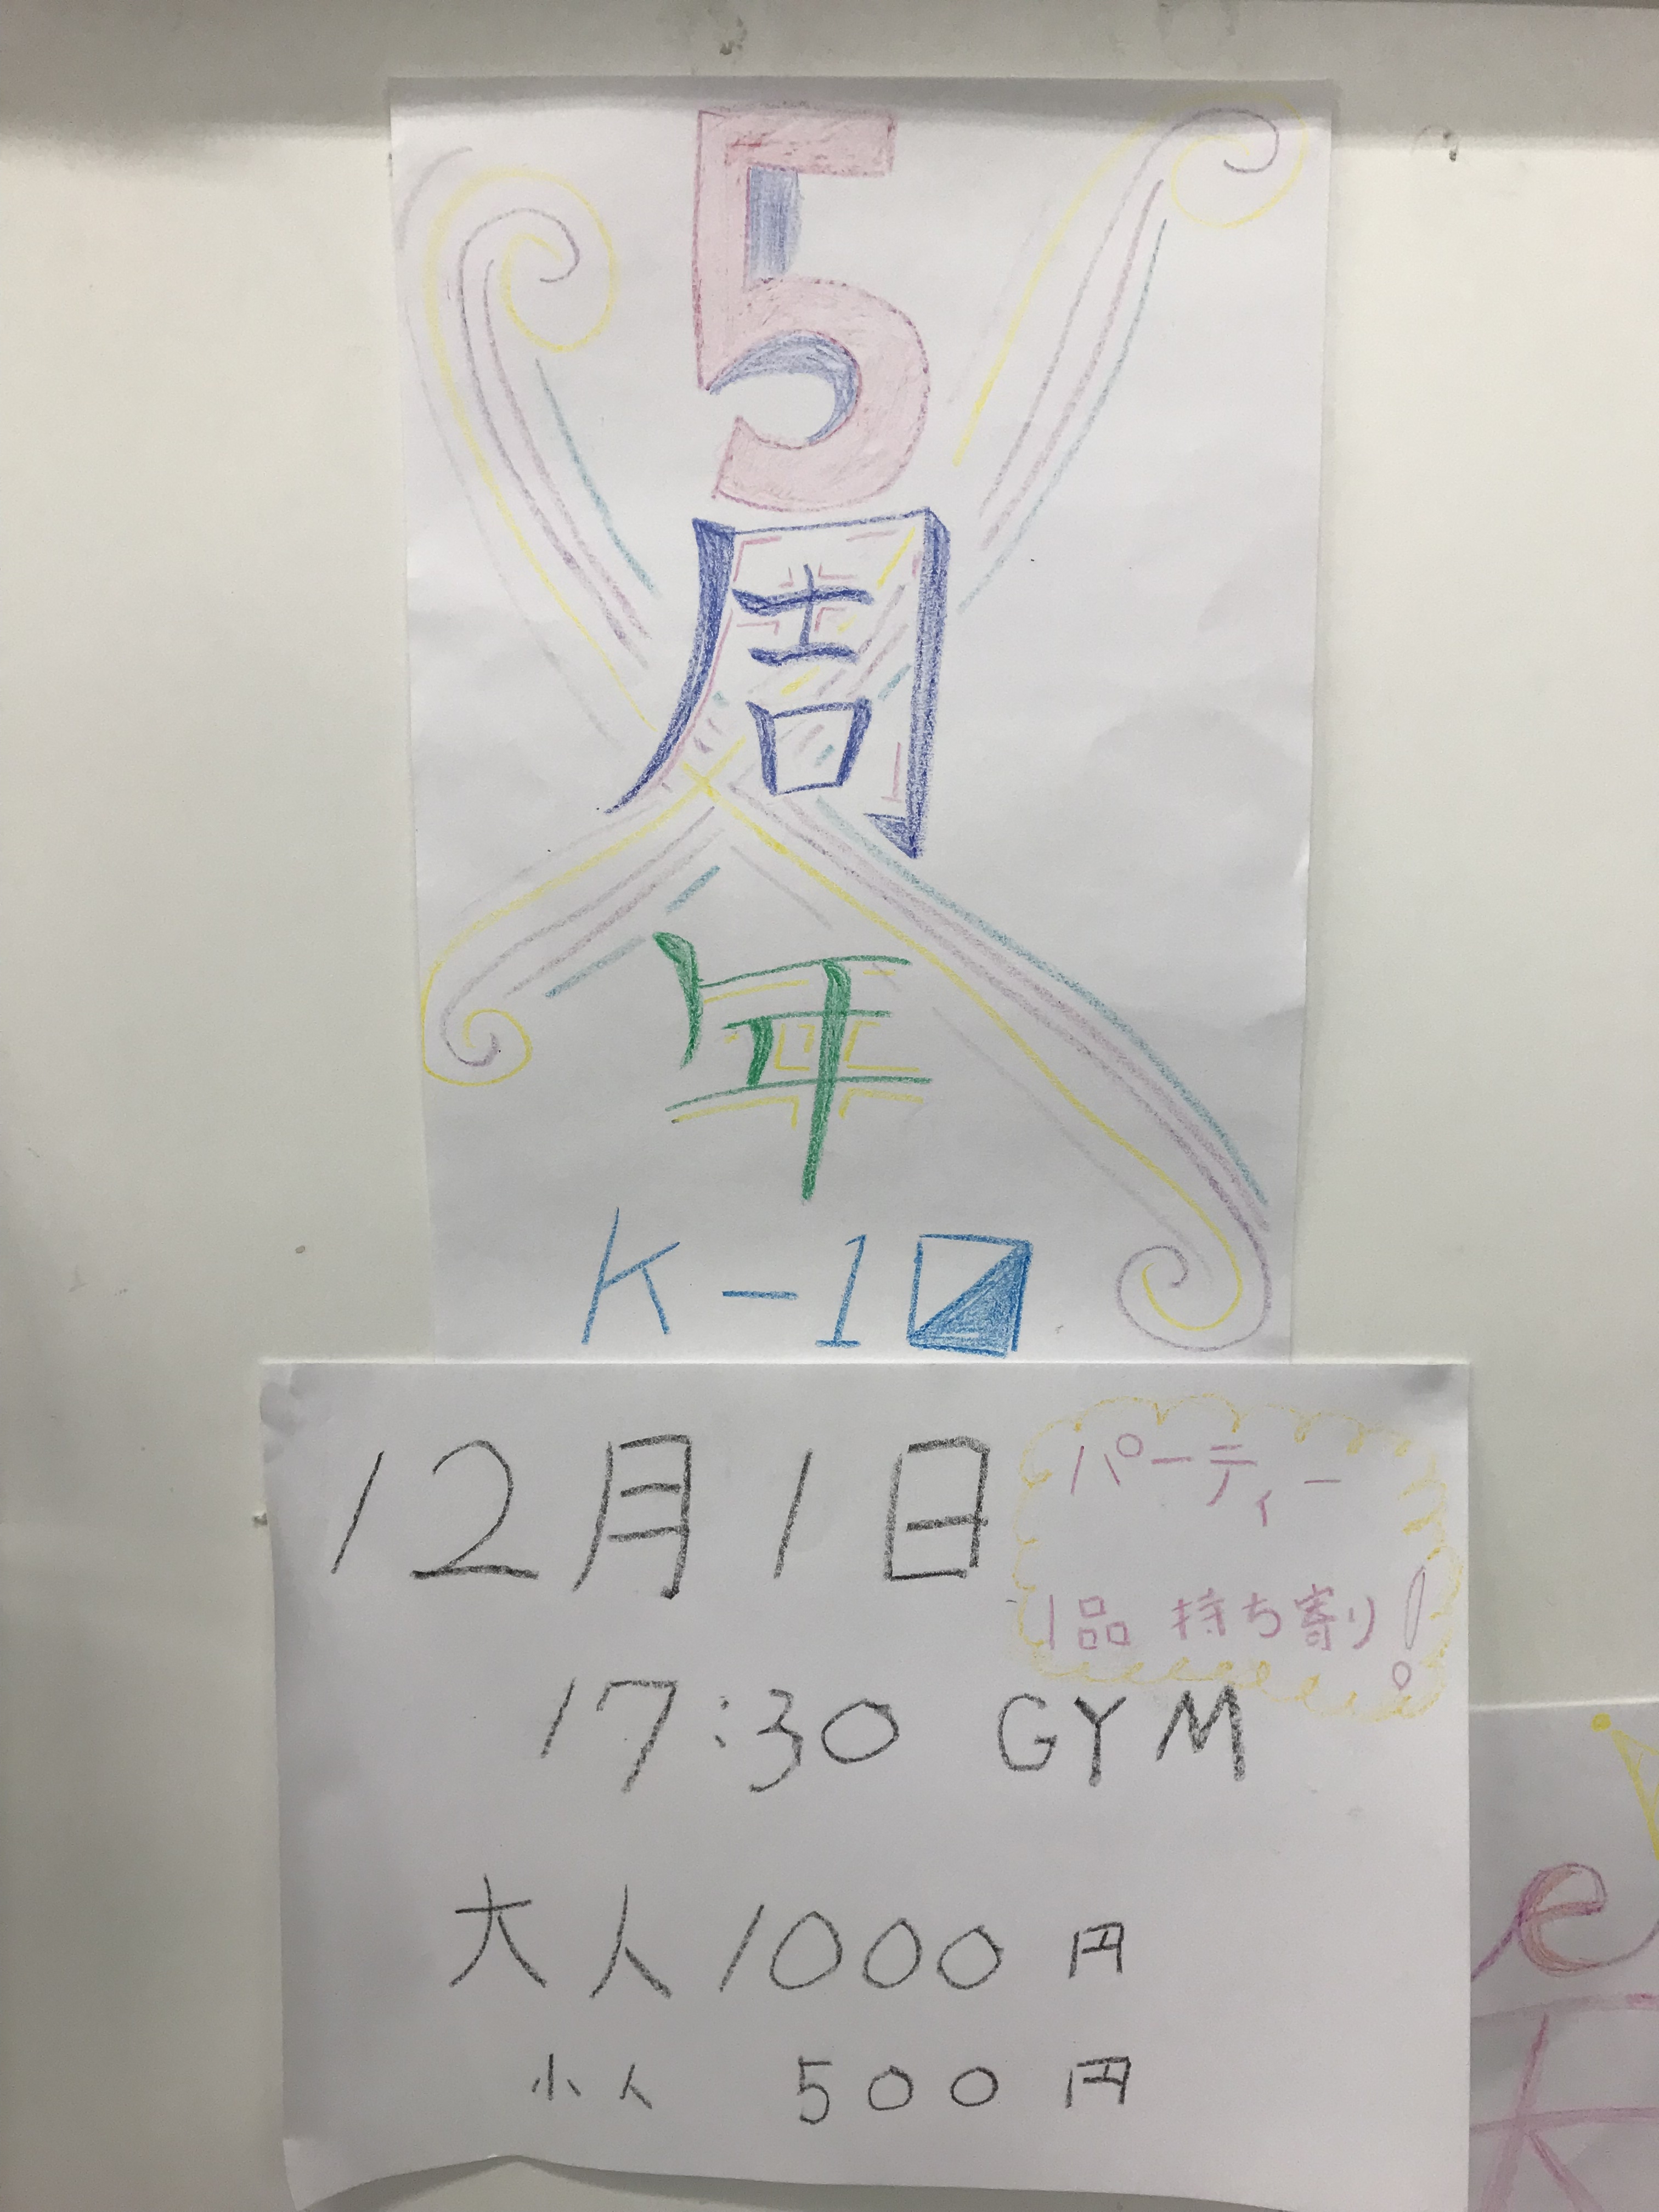 5
周
年
K-1
12月1日
パーティー
1品 持ち寄り!
17:30 GYM
大人 1000円
小人 500円
e